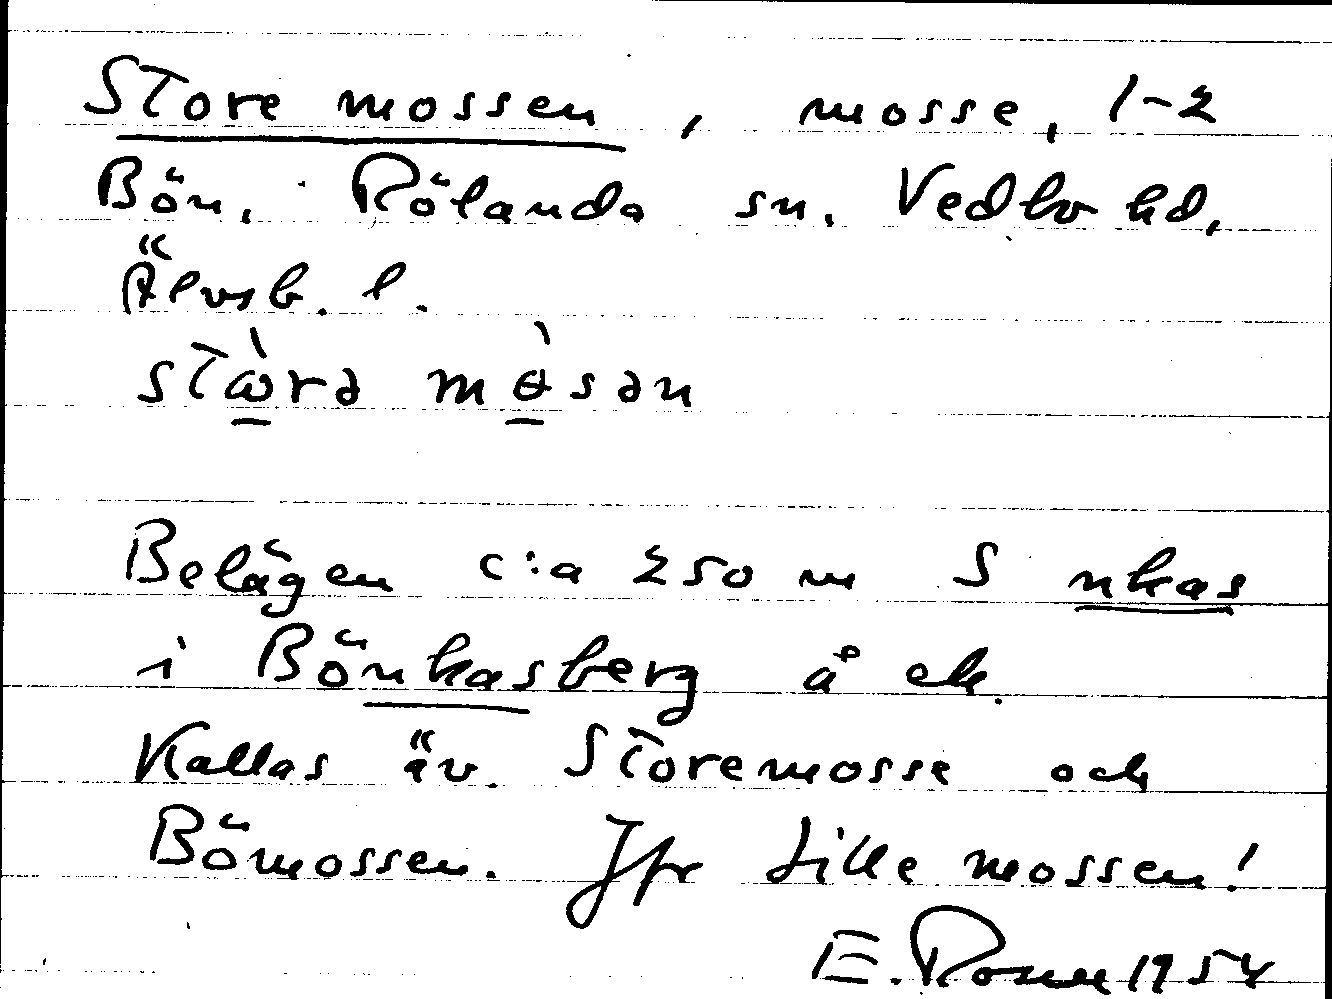 Store mossen, mosse, 1-2
Bön, Rölanda sn. Vedbo hd,
Älvsb. l.
stὼrə mɵ̀sən
Belägen c:a 250 m S nkas
i Bönkasberg å ek.
Kallas äv. Storemosse och
Bömossen. Jfr Lille mossen!
E. 1954